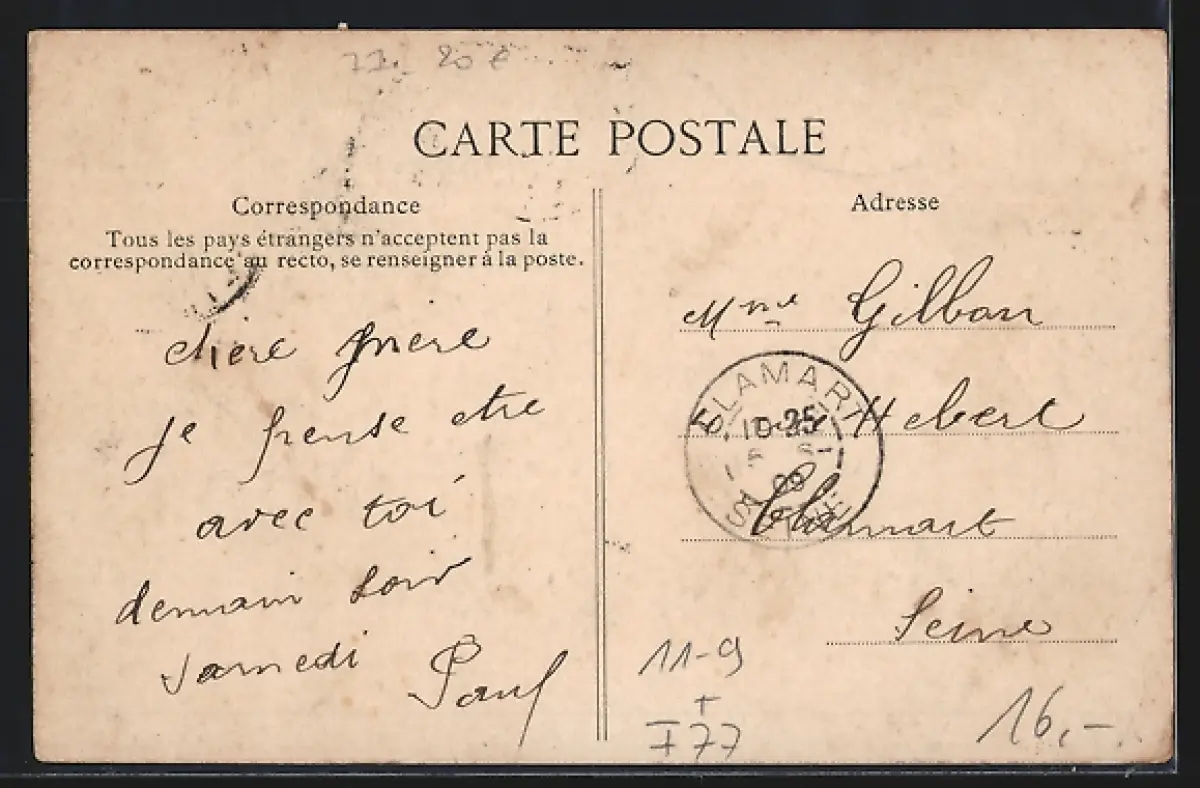 77. 20 €
CARTE POSTALE
Correspondance
Tous les pays étrangers n'acceptent pas la
correspondance au recto, se renseigner à la poste.
chere mere
je pense etre
avec toi
demain soir
samedi Paul
Adresse
Mme Gilbon
Hebert
Clamart
Seine
CLAMART
10 25
SEINE
11-9
+
I 77
16,-